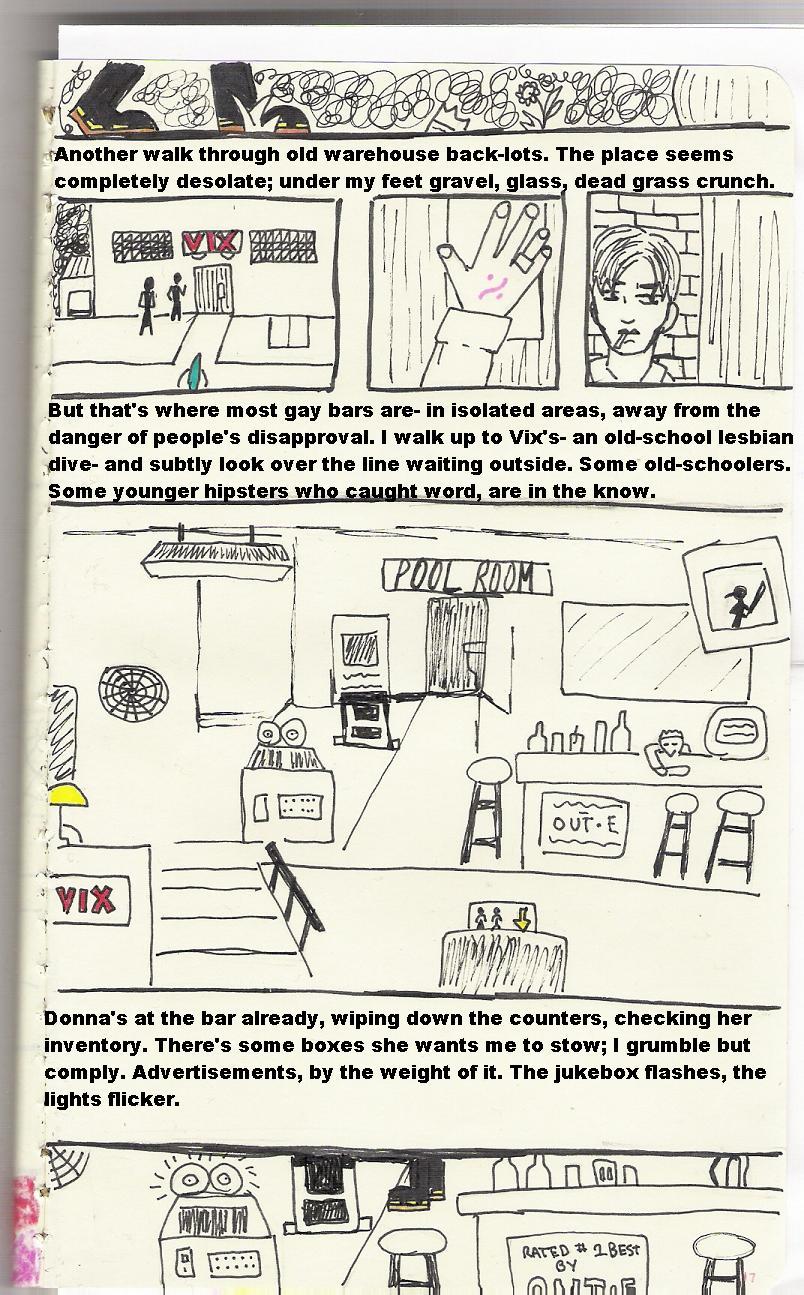 Another walk through old warehouse back-lots. The place seems
completely desolate; under my feet gravel, glass, dead grass crunch.
VIX
But that's where most gay bars are- in isolated areas, away from the
danger of people's disapproval. I walk up to Vix's- an old-school lesbian
dive- and subtly look over the line waiting outside. Some old-schoolers.
Some younger hipsters who caught word, are in the know.
POOL ROOM
OUT·E
VIX
Donna's at the bar already, wiping down the counters, checking her
inventory. There's some boxes she wants me to stow; I grumble but
comply. Advertisements, by the weight of it. The jukebox flashes, the
lights flicker.
RATED # 1 BEST
BY
OUT·E